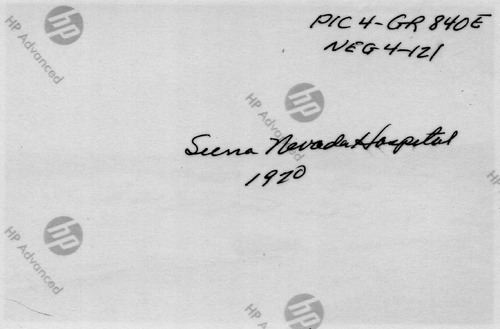 PIC 4-GR 840E
NEG 4-121
Sierra Nevada Hospital
1920
hp
HP Advanced
hp
HP Advanced
hp
HP Advanced
hp
HP Advanced
HP